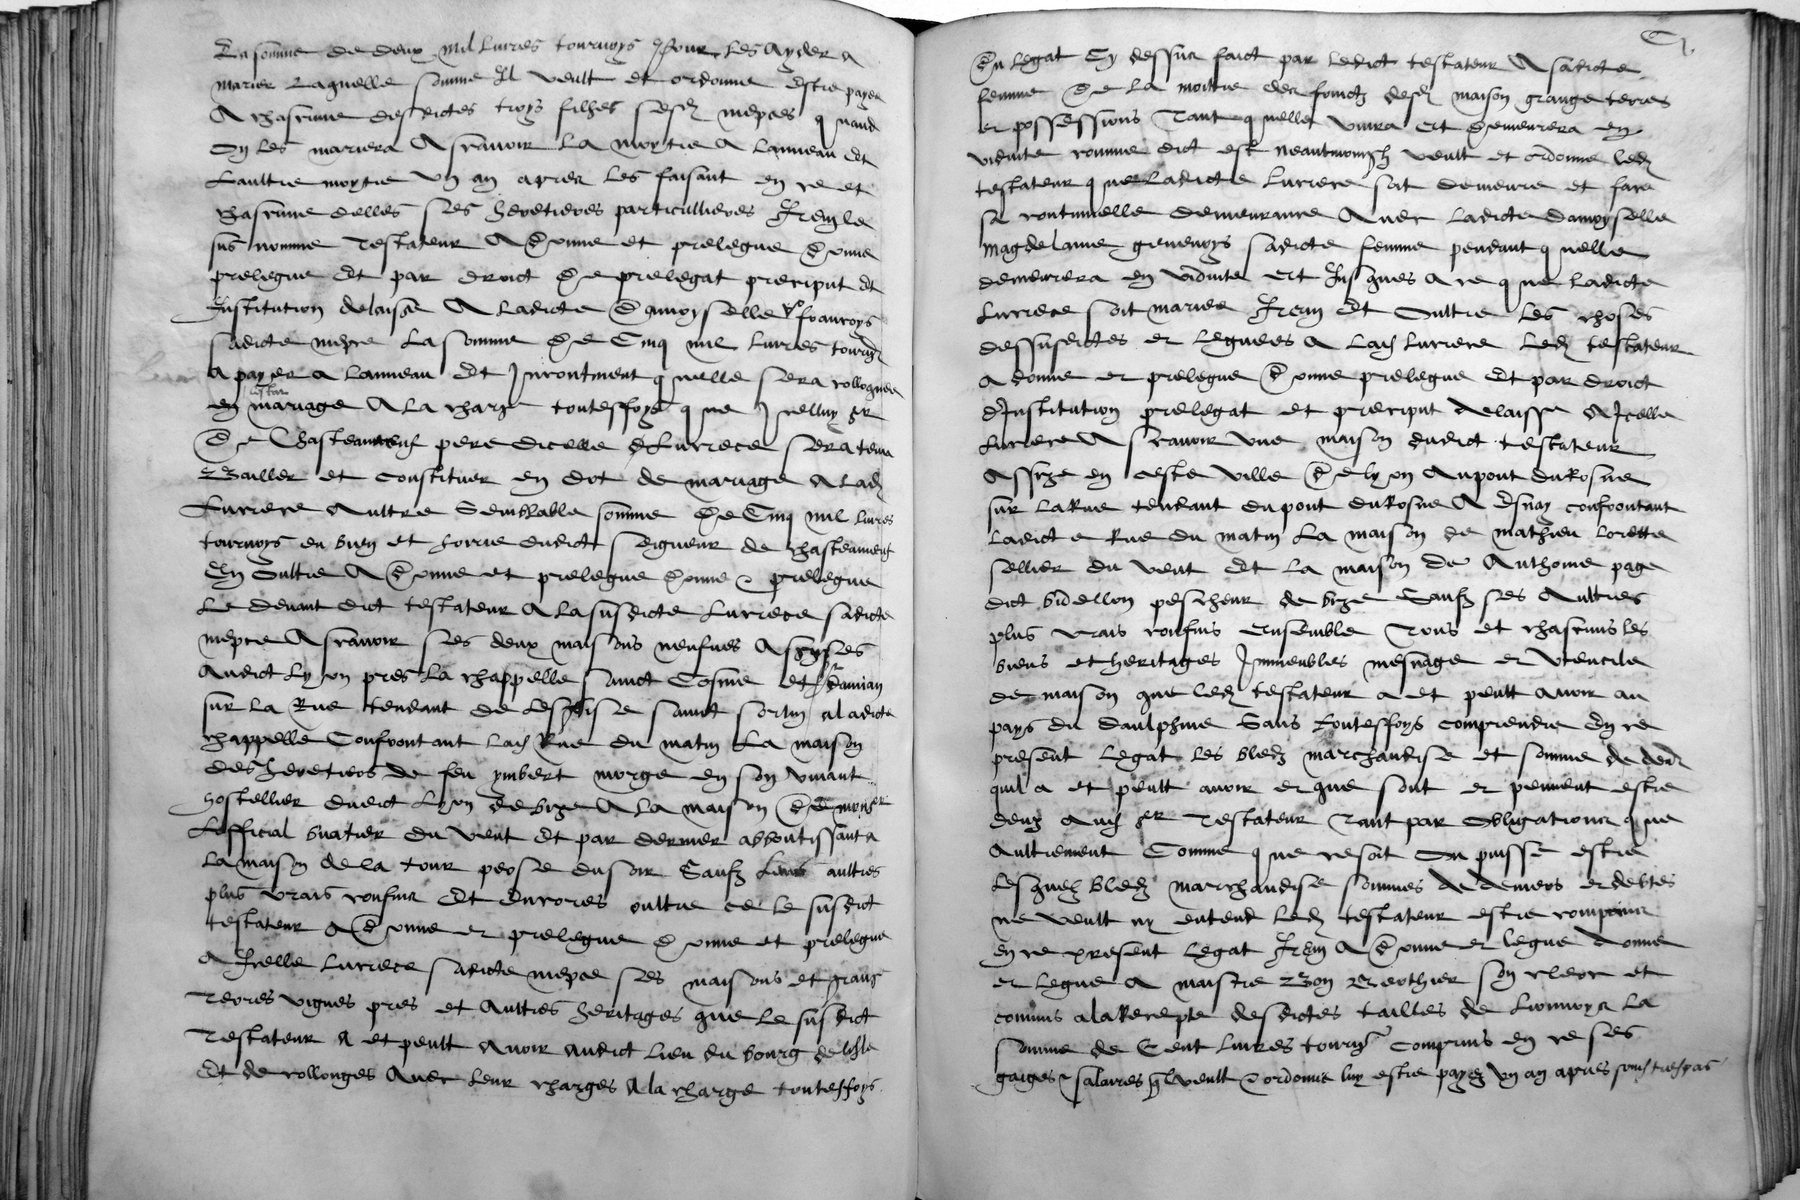 La somme de deux mil livres tournoys pour les ayder a
marier Laquelle somme Il veult et ordonne Estre payee
A chascune desdictes troys filhes sesd niepces quand
On les mariera Ascavoir La moytie A lanneau Et
Laultre moytie Un an apres Les faisant en ce et
chascune delles ses heretieres particullieres Item le
sus nomme Testateur A donne et prelegue donne
prelegue Et par droict De prelegat preciput Et
Institution delaisse A Ladicte Damoyselle francoys
sadicte niepce La somme De Cinq mil Livres tourn
A payer a Lanneau Et Incontinent quelle sera colloquee
en mariage A La charge touteffoys que Icelluy sr
De Chasteauneuf pere dicelle Lucrece sera tenu
Bailler et constituer en dot de mariage A Lad
Lucrece Aultre Semblable somme De Cinq mil livres
tournoys du bien et hoyrie dudict seigneur de chasteauneuf
En Oultre A donne et prelegue donne & prelegue
Le devant dict testateur A La susdicte Lucrece sadicte
niepce Ascavoir ses deux maisons neufves Assises
Audict Lyon pres La chappelle sainct Cosme et st damian
sur La Rue tendant de Lesglise sainct sorlin a ladicte
chappelle Confrontant Lad Rue du matin La maison
des heretiers de feu ymbert morge en son vivant
hostellier dudict Lyon de bize A La maison De monsr
Lofficial buatier du vent Et par dernier abboutissant a
La maison de la tour du soir Saufz Leurs aultres
plus vrais confins Et Encores oultre ce le susdict
testateur A donne et prelegue donne et prelegue
A Icelle Lucrece sadicte niepce ses maisons et grang
Terres vignes pres et Aultres heritages que Le susdict
Testateur A et peult Avoir Audict Lieu du bourg de
Et de collonges Avec Leur charges A la charge touteffoys
Du legat Cy dessus faict par Ledict testateur A sadicte
femme De La moitie des fruictz desd maison grange terres
et possessions Tant quelle vivra Et demeurera en
viduite comme dict est neantmoingh veult et ordonne led
testateur que Ladicte Lucrece soit demeure et face
sa continuelle demeurance Avec Ladicte damoyselle
magdelaine grenoys sadicte femme pendant quelle
demeurera en viduite Et Jusques A ce que Ladicte
Lucrece soit mariee Item Et Oultre Les choses
dessusdictes et Leguees A Lad Lucrece Led testateur
A donne et prelegue Donne prelegue Et par droict
dInstitution prelegat et preciput delaisse A Icelle
Lucrece Ascavoir une maison dudict testateur
Assize en ceste Ville De lyon Au pont du Rosne
sur La Rue tendant du pont du Rosne A Esnay confrontant
Ladicte Rue du matin La maison de mathieu Lorette
sellier du vent Et La maison de Anthoine page
dict bidellon pescheur de bize Saufz ses Aultres
plus vrais confins Ensemble Tous et chascuns les
biens et heritages Immeubles mesnage et Utencile
de maison que led testateur a et peult avoir au
pays du daulphine Sans touteffoys comprendre En ce
present Legat Les bledz marchandise et somme de den
quil a et peult avoir et que sont et peuvent estre
deuz Aud sr Testateur Tant par Obligations que
Aultrement Comme que ce soit Ou puisse estre
Lesquelz bledz marchandise sommes de deniers et debtes
ne veult ny entend Led testateur estre comprins
En ce present Legat Item A donne et legue donne
et Legue A maistre Bon Berthier son clerc et
commis a la Recepte desdictes tailles de Lionnoys La
somme de Cent Livres tourns Comprins en ce ses
gaiges & salaires quil veult & ordonne luy estre payez Un an apres sond trespas